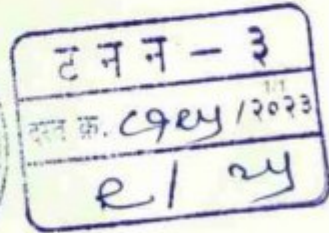 ट न न - ३
दस्त क्र. ८१९५ /२०२३
९ / २५